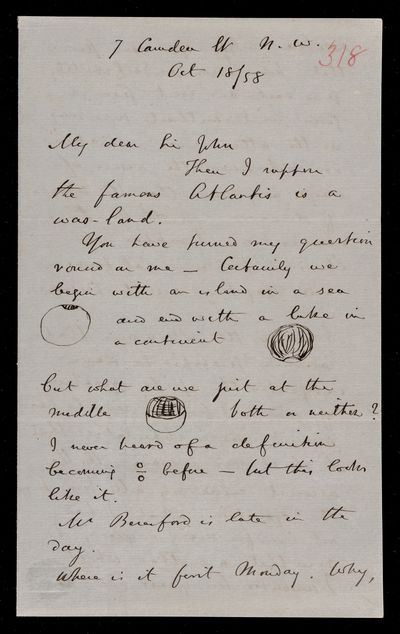 7 Camden St N. W.
318
Oct 18/58
My dear Sir John
Then I suppose
the famous Atlantis is a
was-land.
You have turned my question
round on me — Certainly we
begin with an island in a sea
and end with a lake in
a continent
but what are we just at the
middle both or neither?
I never heard of a definition
becoming 0/0 before — but this looks
like it.
Mr Beresford is late in the
day.
Where is it first Monday. Why,